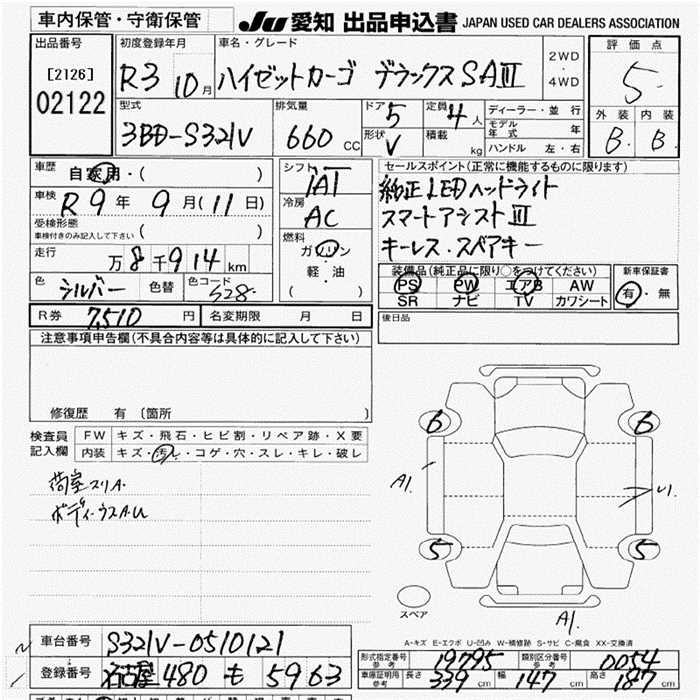 車内保管・守衛保管
JU 愛知 出品申込書 JAPAN USED CAR DEALERS ASSOCIATION
出品番号 [2126] 02122
初度登録年月 R3 10月
車名・グレード ハイゼットカーゴ デラックスSAⅢ
2WD・4WD
評価点 5
外装 内装
B. B.
型式 3BD-S321V
排気量 660 CC
ドア 5
形状 V
定員 4 人
積載 kg
ディーラー・並行
モデル年式 年
ハンドル 左・右
車歴 自家用・( )
車検 R9年 9月(11日)
受検形態 ( )
車検付きのみ記入して下さい
走行 万8千914km
色 シルバー 色替 色コード S28
シフト IAT
冷房 AC
燃料 ガソリン・軽・油 ( )
セールスポイント(正常に機能するものに限ります)
純正LEDヘッドライト
スマートアシストⅢ
キーレス.スペアキー
装備品(純正品に限り○をつけてください)
PS PW エアB AW
SR ナビ TV カワシート
新車保証書
有・無
後日品
R券 7,510 円 名変期限 月 日
注意事項申告欄(不具合内容等は具体的に記入して下さい)
修復歴 有 〔箇所 〕
検査員記入欄
FW キズ・飛石・ヒビ割・リペア跡・X要
内装 キズ・汚レ・コゲ・穴・スレ・キレ・破レ
荷室スリA.
ボディーウスA.U
6 6
A1. U1.
5 5
スペア
A1.
A-キズ E-エクボ U-凹み W-補修跡 S-サビ C-腐食 XX-交換済
車台番号 S321V-0510121
登録番号 名古屋 480 も 5963
形式指定番号 参考 19795 類別区分番号 参考 0054
車庫証明用 参考 長さ 339 cm 幅 147 cm 高さ 187 cm